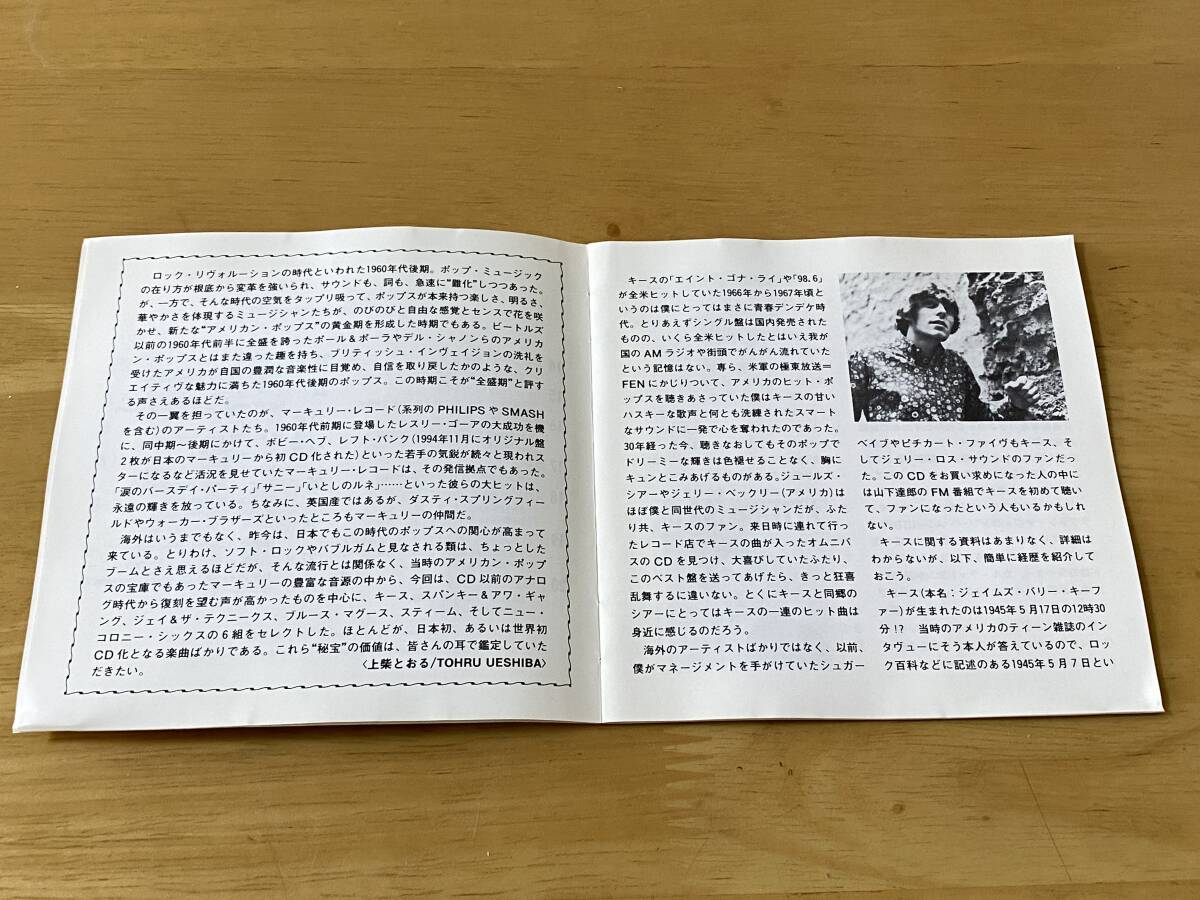 ロック・リヴォルーションの時代といわれた1960年代後期。ポップ・ミュージック
の在り方が根底から変革を強いられ、サウンドも、詞も、急速に“難化”しつつあった。
が、一方で、そんな時代の空気をタップリ吸って、ポップスが本来持つ楽しさ、明るさ、
華やかさを体現するミュージシャンたちが、のびのびと自由な感覚とセンスで花を咲
かせ、新たな“アメリカン・ポップス”の黄金期を形成した時期でもある。ビートルズ
以前の1960年代前半に全盛を誇ったポール&ポーラやデル・シャノンらのアメリカ
ン・ポップスとはまた違った趣を持ち、ブリティッシュ・インヴェイジョンの洗礼を
受けたアメリカが自国の豊潤な音楽性に目覚め、自信を取り戻したかのような、クリ
エイティヴな魅力に満ちた1960年代後期のポップス。この時期こそが“全盛期”と評す
る声さえあるほどだ。
その一翼を担っていたのが、マーキュリー・レコード(系列のPHILIPSやSMASH
を含む)のアーティストたち。1960年代前期に登場したレスリー・ゴーアの大成功を機
に、同中期~後期にかけて、ボビー・ヘブ、レフト・バンク(1994年11月にオリジナル盤
2枚が日本のマーキュリーから初CD化された)といった若手の気鋭が続々と現われス
ターになるなど活況を見せていたマーキュリー・レコードは、その発信拠点でもあった。
「涙のバースデイ・パーティ」「サニー」「いとしのルネ」……といった彼らの大ヒットは、
永遠の輝きを放っている。ちなみに、英国産ではあるが、ダスティ・スプリングフィー
ルドやウォーカー・ブラザーズといったところもマーキュリーの仲間だ。
海外はいうまでもなく、昨今は、日本でもこの時代のポップスへの関心が高まって
来ている。とりわけ、ソフト・ロックやバブルガムと見なされる類は、ちょっとした
ブームとさえ思えるほどだが、そんな流行とは関係なく、当時のアメリカン・ポップ
スの宝庫でもあったマーキュリーの豊富な音源の中から、今回は、CD以前のアナロ
グ時代から復刻を望む声が高かったものを中心に、キース、スパンキー&アワ・ギャ
ング、ジェイ&ザ・テクニークス、ブルース・マグース、スティーム、そしてニュー・
コロニー・シックスの6組をセレクトした。ほとんどが、日本初、あるいは世界初
CD化となる楽曲ばかりである。これら“秘宝”の価値は、皆さんの耳で鑑定していた
だきたい。
〈上柴とおる/TOHRU UESHIBA〉
キースの「エイント・ゴナ・ライ」や「98.6」
が全米ヒットしていた1966年から1967年頃と
いうのは僕にとってはまさに青春デンデケ時
代。とりあえずシングル盤は国内発売された
ものの、いくら全米ヒットしたとはいえ我が
国のAMラジオや街頭でがんがん流れていた
という記憶はない。専ら、米軍の極東放送=
FENにかじりついて、アメリカのヒット・ポ
ップスを聴きあさっていた僕はキースの甘い
ハスキーな歌声と何とも洗練されたスマート
なサウンドに一発で心を奪われたのであった。
30年経った今、聴きなおしてもそのポップで
ドリーミーな輝きは色褪せることなく、胸に
キュンとこみあげるものがある。ジュールズ・
シアーやジェリー・ベックリー(アメリカ)は
ほぼ僕と同世代のミュージシャンだが、ふた
り共、キースのファン。来日時に連れて行っ
たレコード店でキースの曲が入ったオムニバ
スのCDを見つけ、大喜びしていたふたり、
このベスト盤を送ってあげたら、きっと狂喜
乱舞するに違いない。とくにキースと同郷の
シアーにとってはキースの一連のヒット曲は
身近に感じるのだろう。
海外のアーティストばかりではなく、以前、
僕がマネージメントを手がけていたシュガー・
ベイブやピチカート・ファイヴもキース、そ
してジェリー・ロス・サウンドのファンだっ
た。このCDをお買い求めになった人の中に
は山下達郎のFM番組でキースを初めて聴い
て、ファンになったという人もいるかもしれ
ない。
キースに関する資料はあまりなく、詳細は
わからないが、以下、簡単に経歴を紹介して
おこう。
キース(本名:ジェイムズ・バリー・キーフ
ァー)が生まれたのは1945年5月17日の12時30
分!? 当時のアメリカのティーン雑誌のイン
タヴューにそう本人が答えているので、ロッ
ク百科などに記述のある1945年5月7日とい